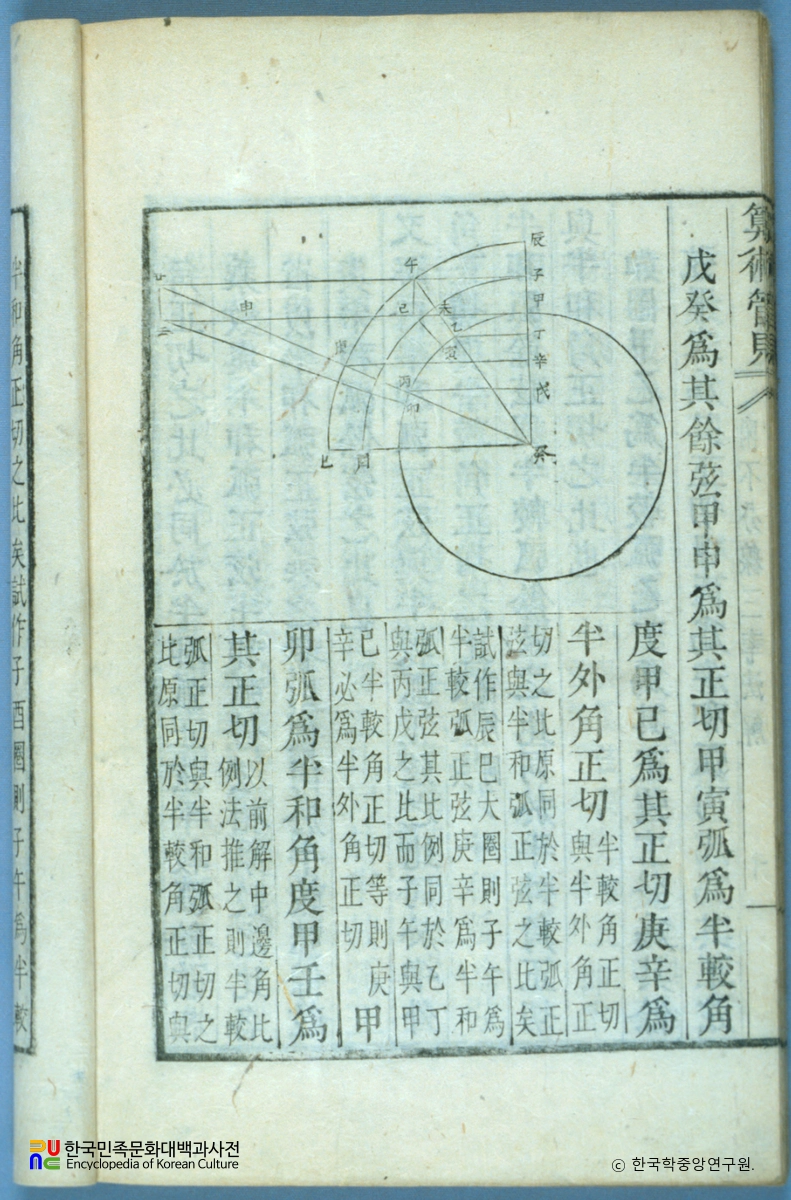 算術管見
戊癸爲其餘弦甲申爲其正切甲寅弧爲半較角
辰
子
甲
丁
辛
戊
癸
午
己
未
乙
寅
申
庚
丙
卯
巳
酉
度甲己爲其正切庚辛爲
半外角正切
半較角正切
與半外角正
切之比原同於半較弧正
弦與半和弧正弦之比矣
試作辰巳大圈則子午爲
半較弧正弦庚辛爲半和
弧正弦其比例同於乙丁
與丙戊之比而子午與甲
己半較角正切等則庚
辛必爲半外角正切
甲
卯弧爲半和角度甲壬爲
其正切
以前解中邊角比
例法推之則半較
弧正切與半和弧正切之
比原同於半較角正切與
半和角正切之比矣試作子酉圈則子午爲半較
한국민족문화대백과사전
Encyclopedia of Korean Culture
ⓒ 한국학중앙연구원.